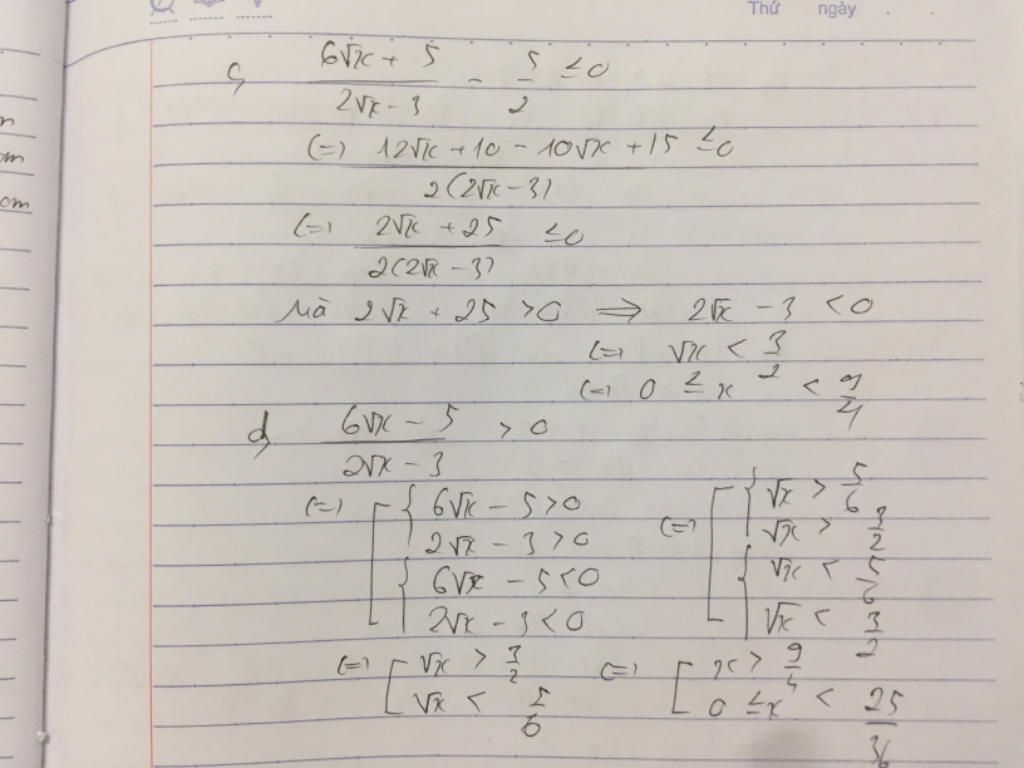 Thứ ngày
c, (6√x + 5)/(2√x - 3) - 5/2 ≤ 0
(=) (12√x + 10 - 10√x + 15)/(2(2√x - 3)) ≤ 0
(=) (2√x + 25)/(2(2√x - 3)) ≤ 0
Mà 2√x + 25 > 0 ⟹ 2√x - 3 < 0
(=) √x < 3/2
(=) 0 ≤ x < 9/4
d, (6√x - 5)/(2√x - 3) > 0
(=) [ { 6√x - 5 > 0 (=) [ { √x > 5/6
2√x - 3 > 0 √x > 3/2
{ 6√x - 5 < 0 { √x < 5/6
2√x - 3 < 0 √x < 3/2
(=) [ √x > 3/2 (=) [ x > 9/4
√x < 5/6 0 ≤ x < 25/36